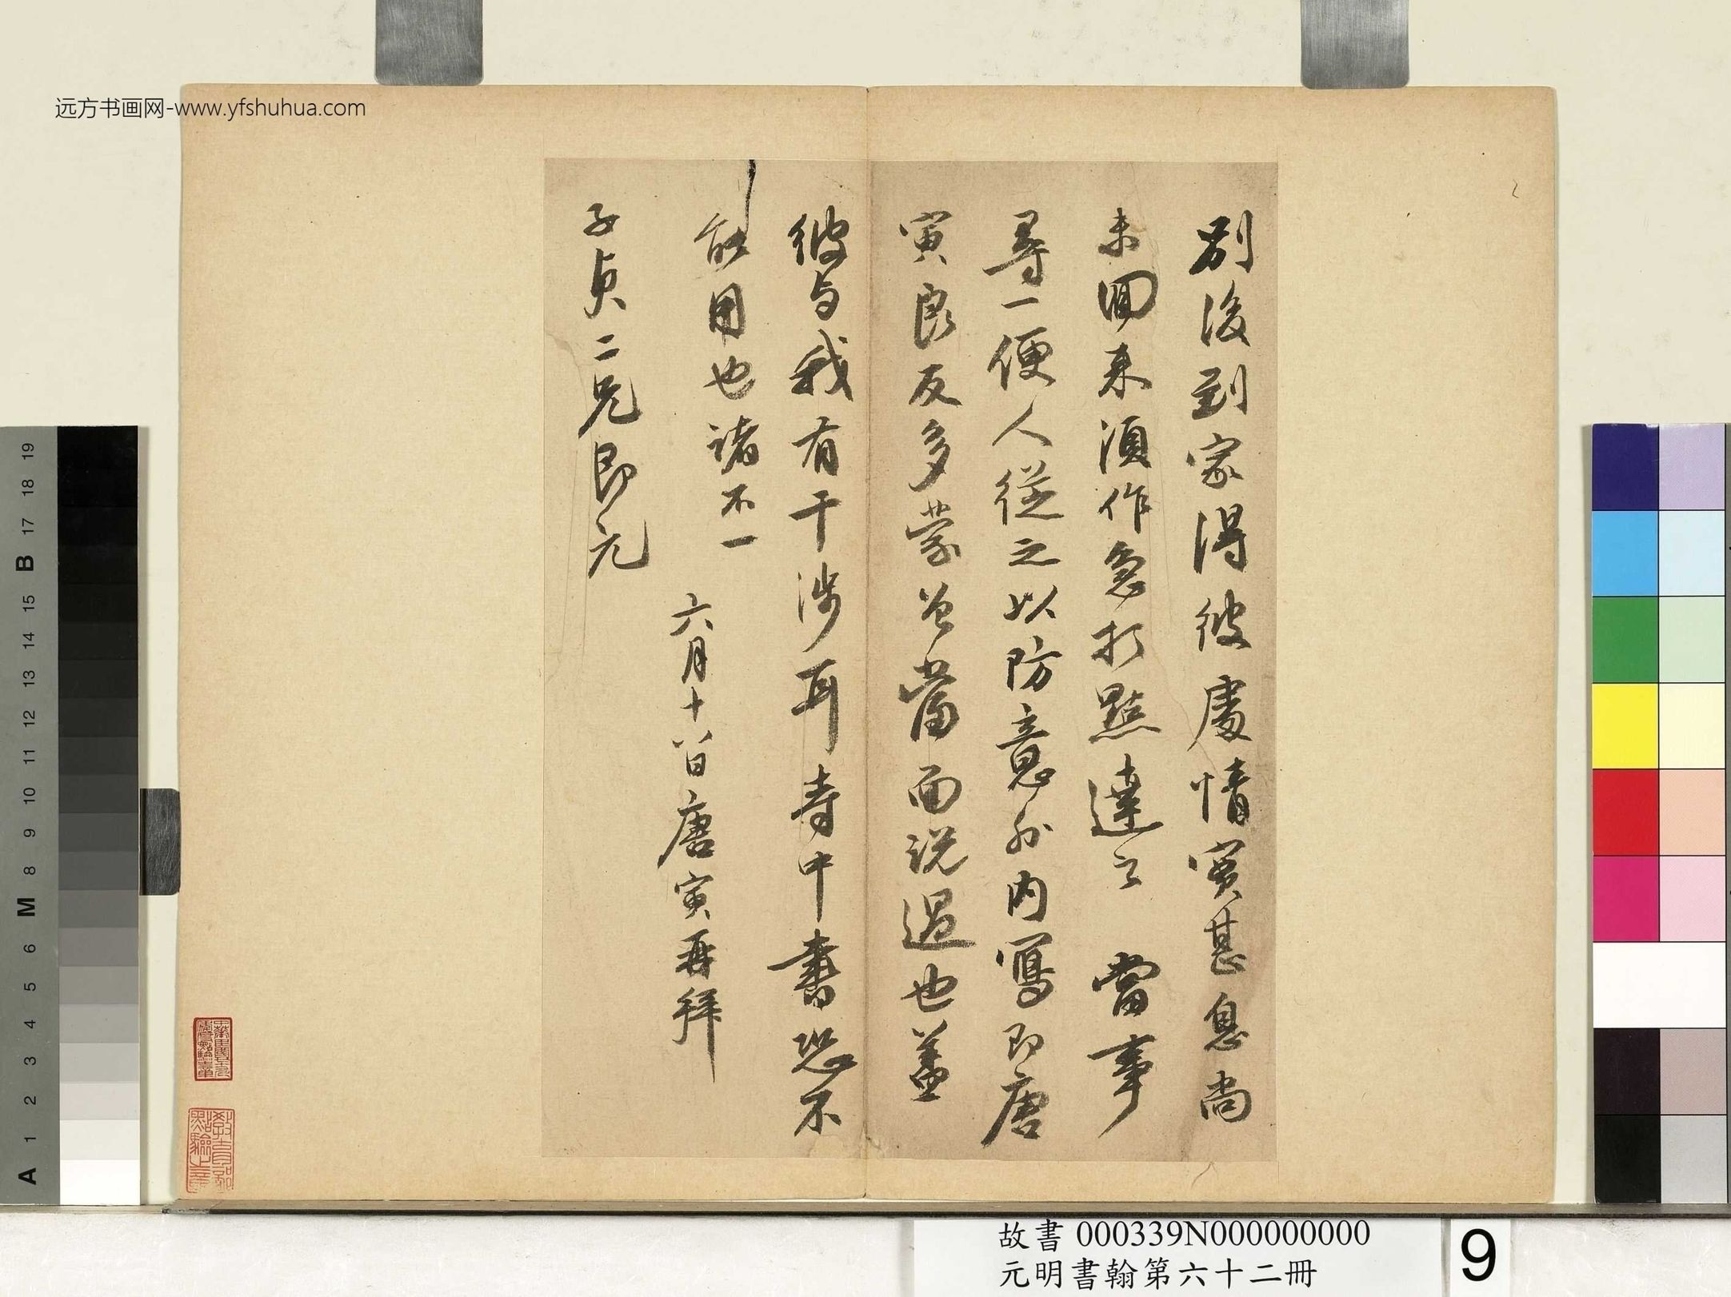 别後到家得彼處情實甚息尚
未回来須作急打點達之 當事
尋一便人從之以防意外内寫即唐
寅良反多蒙曾當面説過也盖
彼与我有干涉耳寿中書恐不
能用也諸不一
六月十八日唐寅再拜
子貞二兄即元
远方书画网-www.yfshuhua.com
故書 000339N000000000
元明書翰第六十二冊
9
19
18
17
B
15
14
13
12
11
10
9
8
M
6
5
4
3
2
1
A